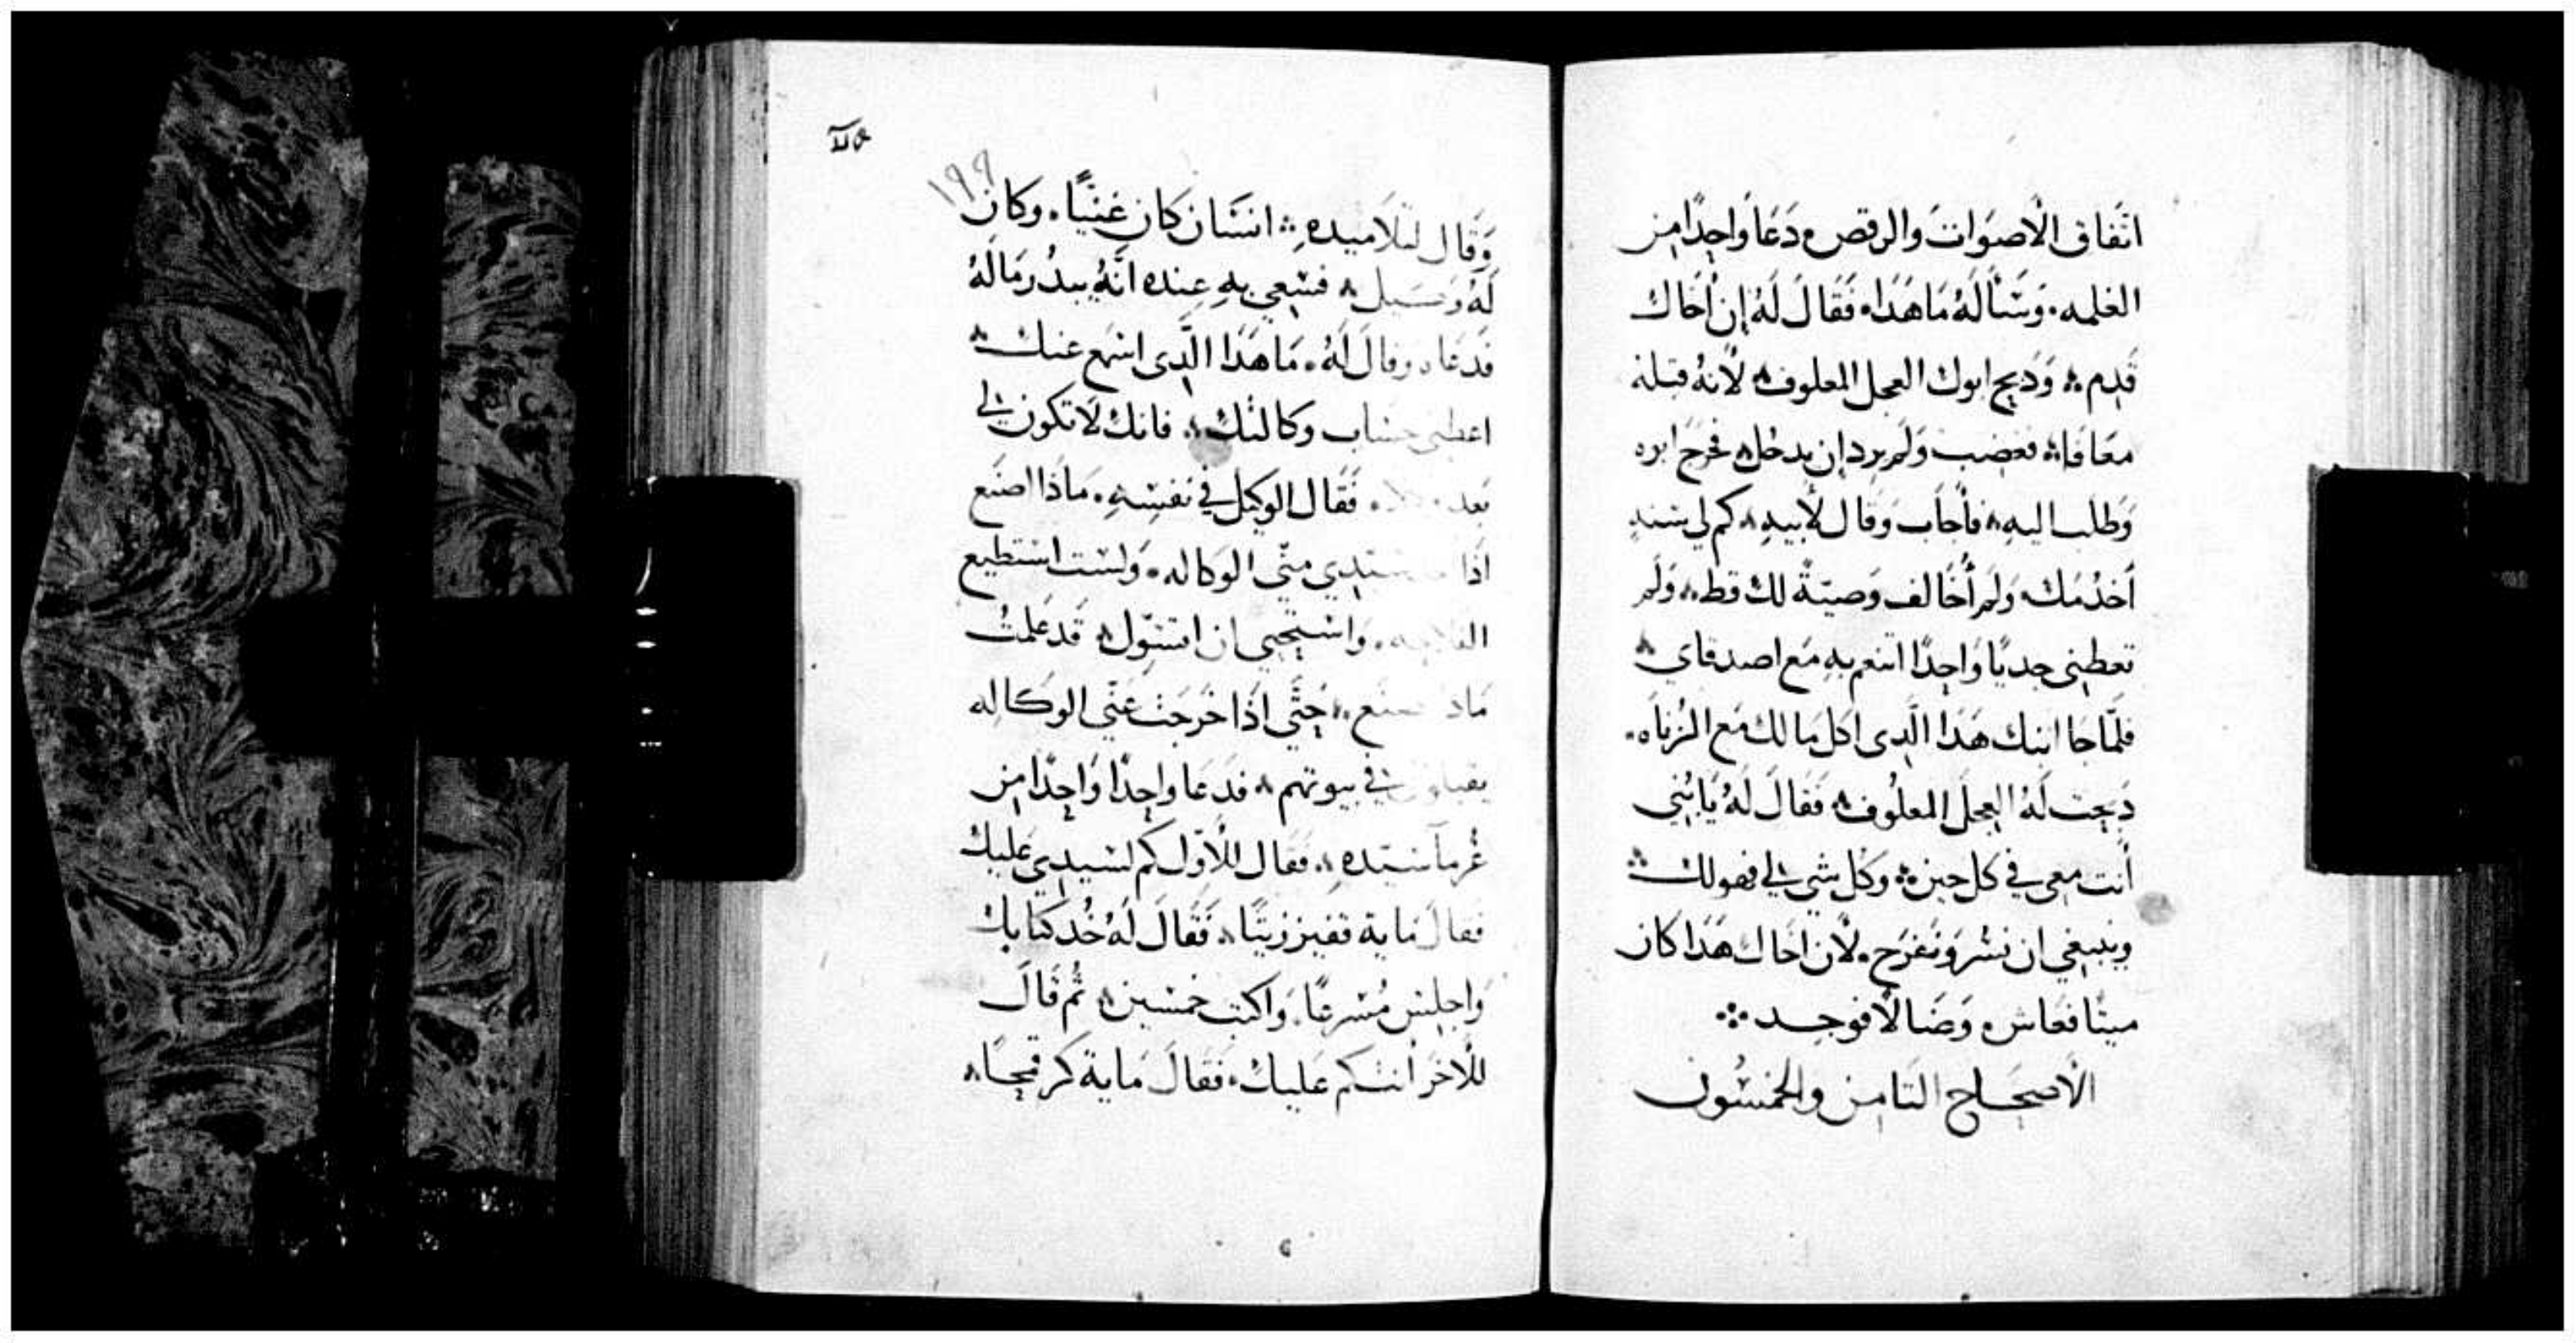 اتفاق الاصوات والرقص دَعَا وَاحِدًا مِن
الغلمه. وَسَأَلَهُ مَا هَذَا. فَقَالَ لَهُ إن أخَاك
قَدِم وَدبح ابوك العجل المعلوف لأنهُ قبله
مُعَافَا فغضب وَلَم يرد إن يدخل فخرَجَ ابوه
وَطلب اليهِ فأجَاب وَقال لأبيهِ كم لي سنه
أخدُمَك وَلَم أُخَالف وَصيّةً لك قط وَلَم
تعطني جديًا وَاحِدًا اتنعم بهِ مَع اصدقاي
فلمّا جَا ابنك هَذا الَّدِى اكل مَالك مَع الزُناه.
دَبحت لَهُ العِجلَ المعلُوف فَقَالَ لَهُ يَا بُنَي
أنت معي في كل حين وَكل شي لي فهو لك
وينبغي ان نسُر وَنفرَح. لأن اخاك هَذا كان
ميتًا فعَاش وَضَالًا فوجد
الأصحَاح التَامِن والخمسُون
١٩٩
وَقَال لتلَاميدهِ انسَان كَان غنيًّا. وكان
لَهُ وَكيل فسُعِي بهِ عِنده انَّهُ يبدُر مَالَهُ
فدعَاه وقالَ لَهُ. مَا هَذَا الَّدِى اسمَع عنك
اعطني حسَاب وكالتك فانك لَا تكون لي
بَعد فَقَال الوكيل في نفسِهِ. مَاذَا اصنَع
اذَا سيدي منّي الوَكاله. وَلست استطيع
الفلاحه. وَاستحيي ان اتسَوّل قَد عَلمتُ
مَاذا اصنَع حَتَّي اذَا خَرَجَت عَنّي الوكَاله
يقبلوني في بيوتهم فدَعَا وَاحِدًا وَاحِدًا مِن
غُرمآ سَيدهِ فقال للأوَل كم لسَيدِي عَليك
فقالَ مَاية قفيز زيتًا فَقَالَ لَهُ خُد كتابك
وَاجلِس مُسرعًا. وَاكتب خمسين ثُم قَالَ
للأخَر أنت كم عَليك. فَقَالَ مَاية كر قمحًا